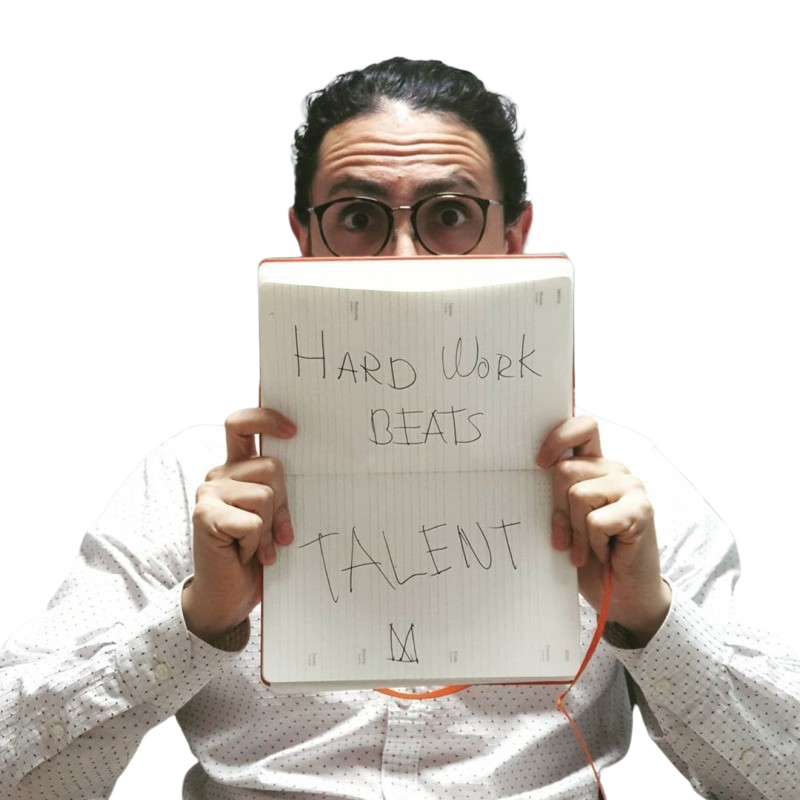 HARD WORK
BEATS
TALENT